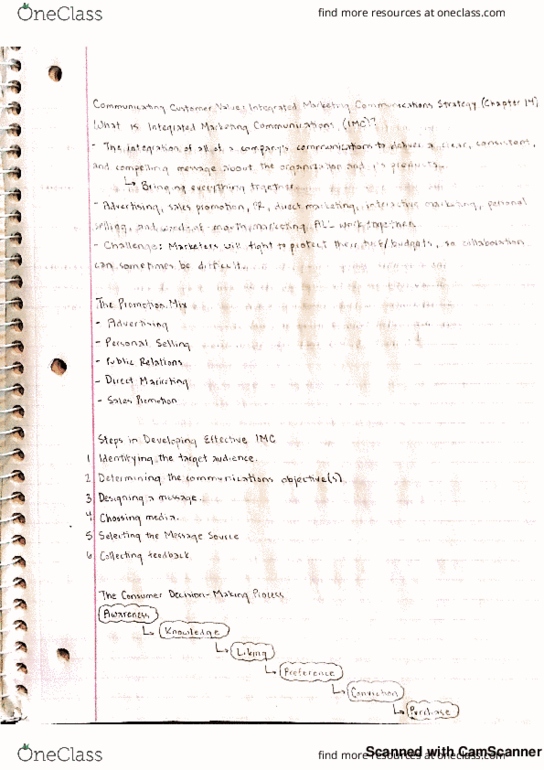 OneClass
find more resources at oneclass.com
Communicating Customer Value: Integrated Marketing Communications Strategy (Chapter 14)
What is Integrated Marketing Communications (IMC)?
- The integration of all of a company's communication to deliver a clear, consistent,
and compelling message about the organization and it's products.
↳ Bringing everything together.
- Advertising, sales promotion, PR, direct marketing, interactive marketing, personal
selling, and word-of-mouth marketing ALL work together.
- Challenge: Marketers will fight to protect their budgets, so collaboration
can sometimes be difficult.
The Promotion Mix
- Advertising
- Personal Selling
- Public Relations
- Direct Marketing
- Sales Promotion
Steps in Developing Effective IMC
1 Identifying the target audience.
2 Determining the communications objective(s)
3 Designing a message.
4 Chossing media.
5 Selecting the Message Source
6 Collecting feedback
The Consumer Decision-Making Process
Awareness
↳ Knowledge
↳ Liking
↳ Preference
↳ Conviction
↳ Purchase
OneClass
find more resources at oneclass.com
Scanned with CamScanner